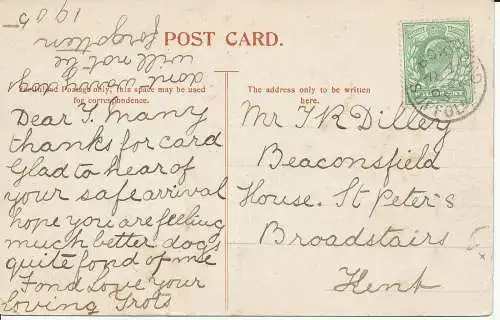 POST CARD.
For Inland Postage only, this space may be used
for correspondence.
The address only to be written
here.
Dear T. Many
thanks for card
Glad to hear of
your safe arrival
hope you are feeling
much better dog
quite fond of me
Fond Love your
loving Trots
dont worry dogs
will not be
forgotten
1905
Mr T R Dilley
Beaconsfield
House. St Peter's
Broadstairs
Kent